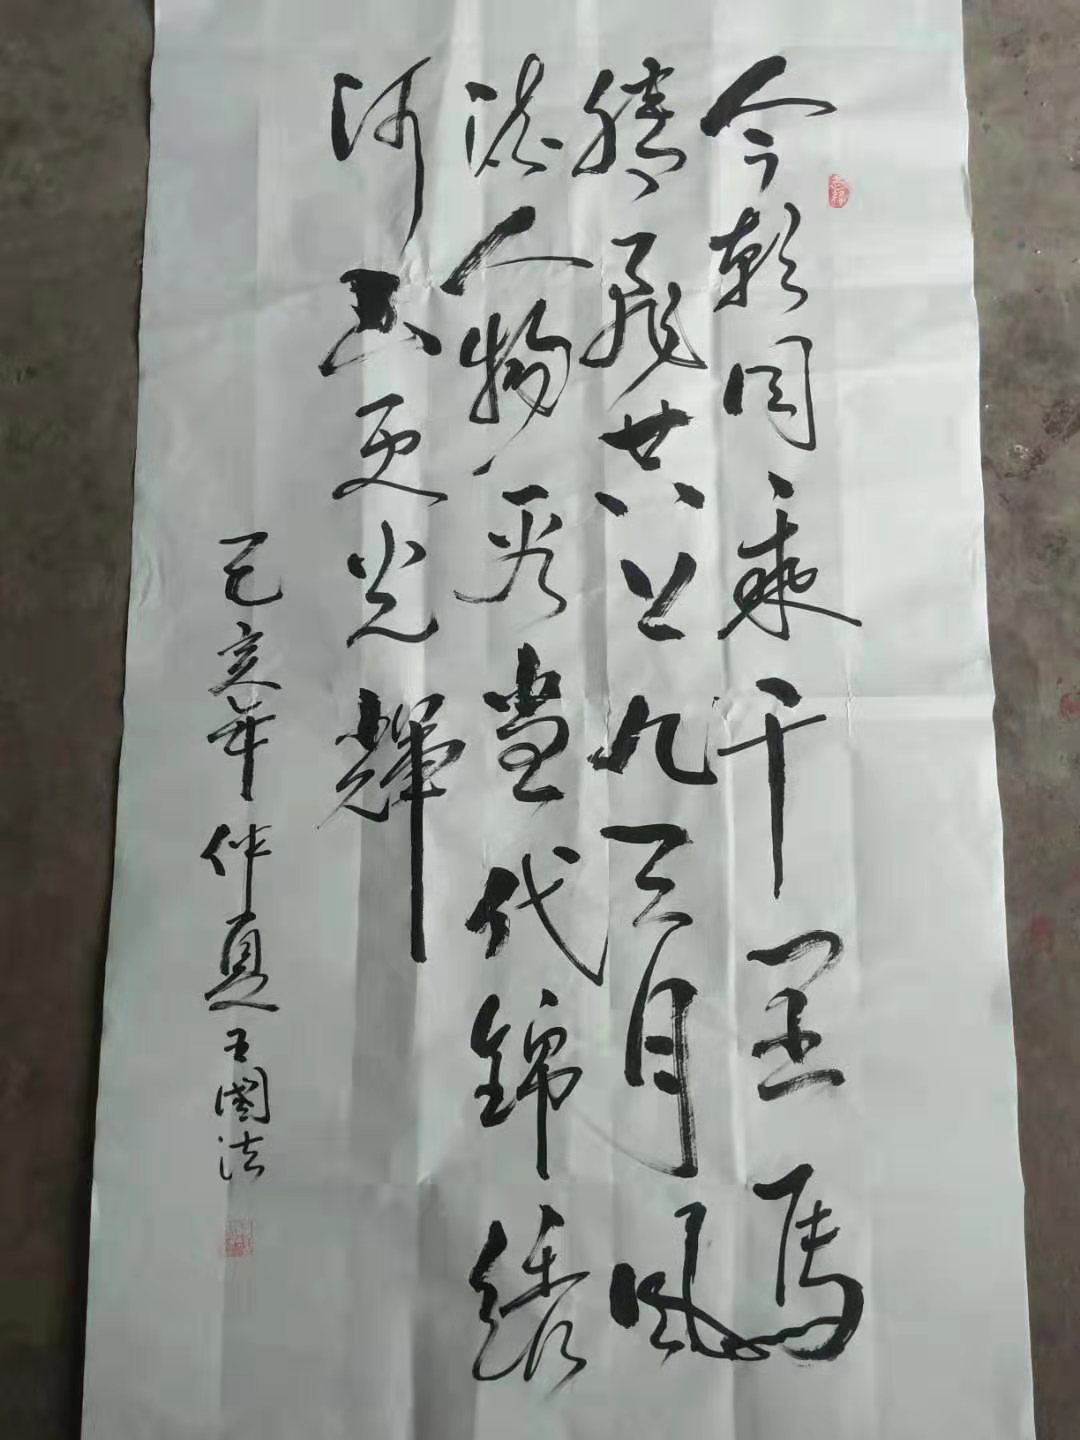 今朝同乘千里馬
騰飛共上九天月風
流人物看當代錦繡
河山更光輝
己亥年仲夏王國法